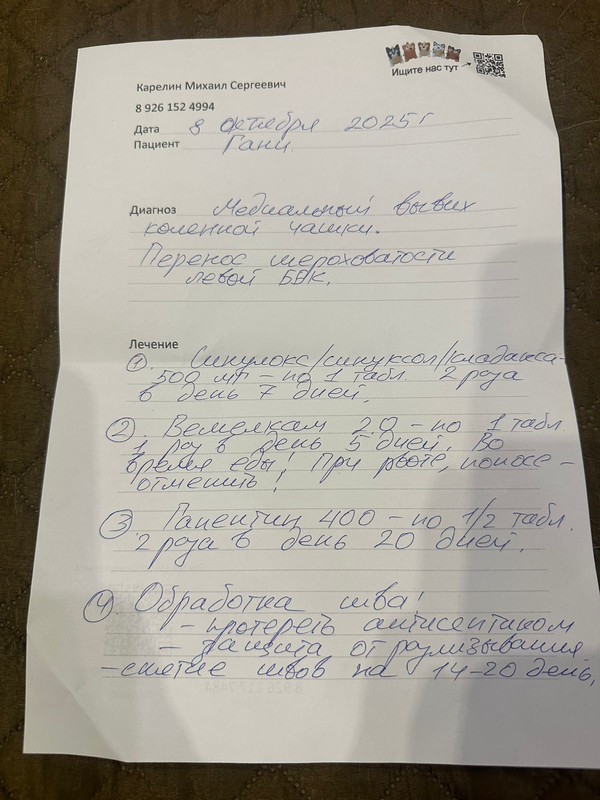 Ищите нас тут →
Карелин Михаил Сергеевич
8 926 152 4994
Дата 8 октября 2025г
Пациент Гани.
Диагноз Медиальный вывих
коленной чашки.
Перенос шероховатости
левой ББК.
Лечение
① Синулокс/синуксол/кладакса-
500 мг – по 1 табл. 2 раза
в день 7 дней.
② Вемелкам 2.0 – по 1 табл.
1 раз в день 5 дней. Во
время еды! При рвоте, поносе –
отменить!
③ Гапентин 400 – по 1/2 табл.
2 раза в день 20 дней.
④ Обработка шва!
- протереть антисептиком
- защита от разлизывания
- снятие швов на 14-20 день.